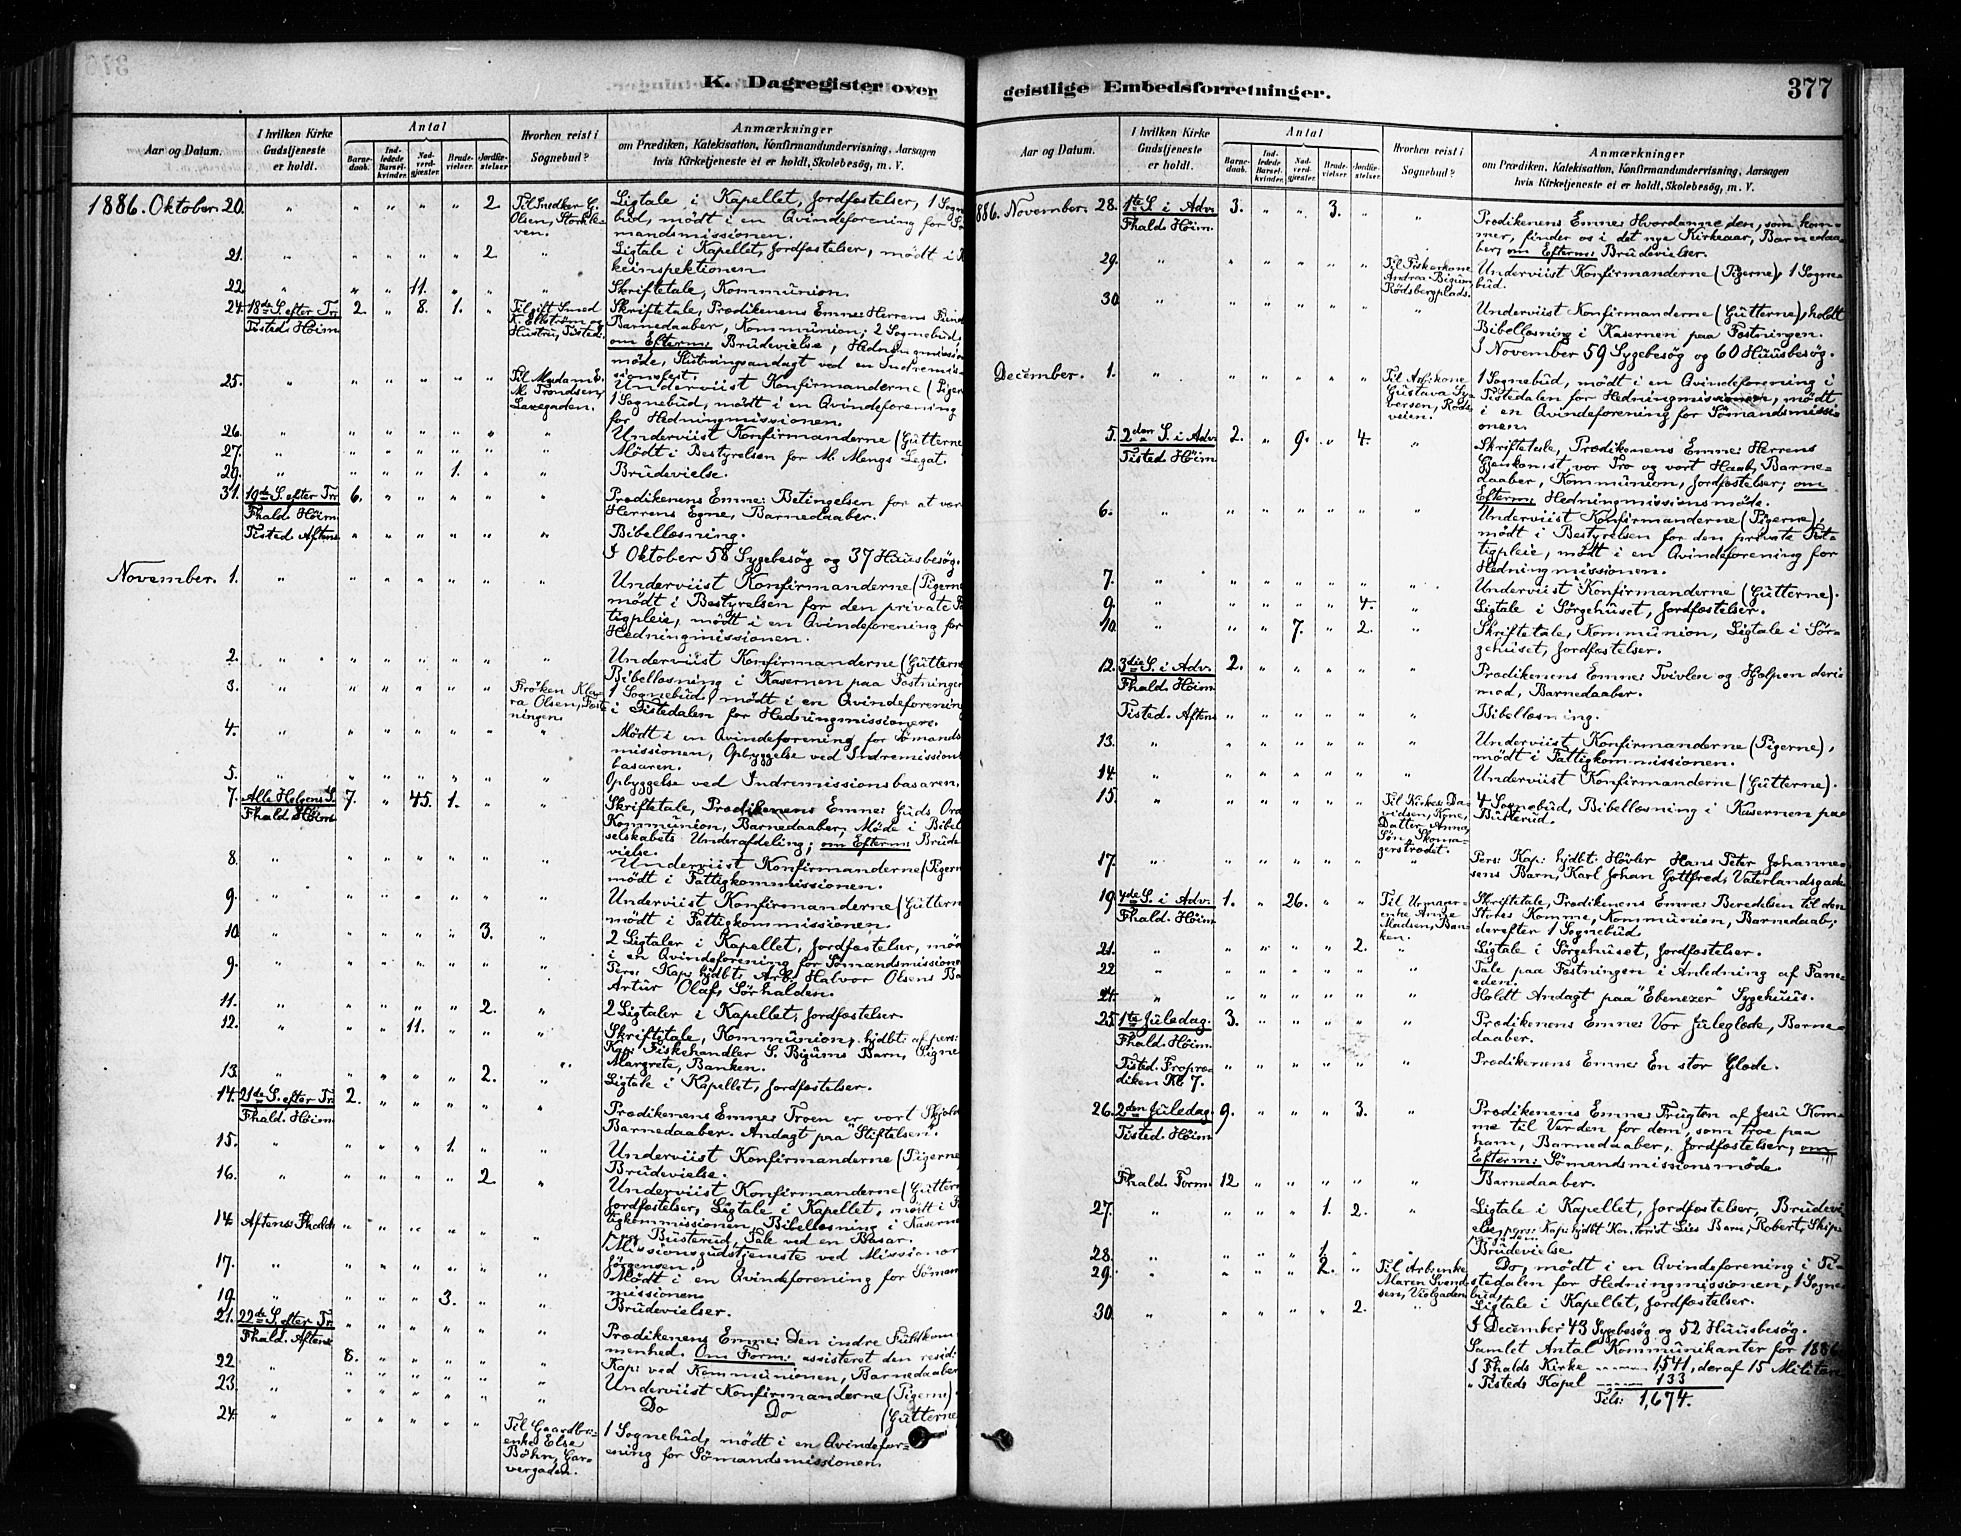 K. Dagregister over
Aar og Datum.
I hvilken Kirke Gudstjeneste er holdt.
Antal
Barnedaab.
Indledede Barselkvinder.
Nadverdgjester.
Brudevielser.
Jordfæstelser.
Hvorhen reist i Sognebud?
Anmærkninger
om Prædiken, Katekisation, Konfirmandundervisning, Aarsagen
hvis Kirketjeneste ei er holdt, Skolebesøg, m. V.
1886. Oktober. 20. " " " " " 2. Til Snedker G. Ligtale i Kapellet, Jordfæstelser, 1 Sogne
Olsen, bud, mødt i en Qvindeforening for
ven. mandsmissionen.
21. " " " " " 2 " Ligtale i Kapellet, Jordfæstelser, mødt i
keinspektionen.
22. " " " 11. " " " Skriftetale, Kommunion.
24. 18de S. efter Tr. 2. " 8. 1. " Til gift Smed Skriftetale, Prædikenens Emne: Herrens
Tisted. Høim. K. Ekström og Barnedaaber, Kommunion; 2 Sognebud,
Hustru, Tisted. om Efterm: Brudevielse, Hedningmissions
møde, Slutningsandagt ved en Indremis-
sionsfest.
25. " " " " " " Til Madam Underviist Konfirmanderne (Piger
M. Trondsen, 1 Sognebud, mødt i en Qvindeforening
Lavegaden. for Hedningmissionen.
26. " " " " " " " Underviist Konfirmanderne (Gutterne
27. " " " " " " " Mødt i Bestyrelsen for M. Mengs Legat.
29. " " " " 1. " " Brudevielse.
31. 19de S. efter Tr. 6. " " " " " Prædikenens Emne: Betingelsen for at være
Fhald. Høim. Herrens Egne, Barnedaaber.
Tisted. Aftens " " " " " " Bibellæsning.
I Oktober 58 Sygebesøg og 37 Huusbesøg.
November. 1. " " " " " " " Underviist Konfirmanderne (Pigerne
mødt i Bestyrelsen for den private
tigpleie, mødt i en Qvindeforening for
Hedningmissionen.
2. " " " " " " " Underviist Konfirmanderne (Gutterne
Bibellæsning i Kasernen paa Fæstningen
3. " " " " " " Frøken Kla- 1 Sognebud, mødt i en Qvindeforening
ra Olsen, Fæst- i Tistedalen for Hedningmissionen.
ningen.
4. " " " " " " " Mødt i en Qvindeforening for Sømands
missionen, Opbyggelse ved Indremissions
basaren.
5. " " " " " " " Opbyggelse ved Indremissionsbasaren.
7. Alle Helgens S. 7. " 45. 1. " " Skriftetale, Prædikenens Emne: Guds Ord
Fhald. Høim. Kommunion, Barnedaaber, Møde i Bibel
selskabets Underafdeling; om Efterm: Brude
vielse.
8. " " " " " " " Underviist Konfirmanderne (Pigerne
mødt i Fattigkommissionen.
9. " " " " " " " Underviist Konfirmanderne (Gutterne
mødt i Fattigkommissionen.
10. " " " " " 3. " 2 Ligtaler i Kapellet, Jordfæstelser, mødt
i en Qvindeforening for Sømandsmissionen
9. " " " " " " " Pers: Kap: hjdbt: Arb. Halvor Olsens Ba
Artur Olaf, Sørhalden.
11. " " " " " 2. " 2 Ligtaler i Kapellet, Jordfæstelser
12. " " " 11. " " " Skriftetale, Kommunion, hjdbt: af pers:
Kap: Fiskehandler S. Bigums Barn, Signe
Margrete, Banken.
13. " " " " " 2. " Ligtale i Kapellet, Jordfæstelser.
14. 21de S. efter Tr. 2. " " " " " Prædikenens Emne: Troen er vort Skjold
Fhald. Høim. Barnedaaber. Andagt paa "Stiftelsen".
15. " " " " 1. " " Underviist Konfirmanderne (Pigerne,
Brudevielse.
16. " " " " " 2. " Underviist Konfirmanderne (Gutterne
Jordfæstelser, Ligtale i Kapellet, mødt i
tigkommissionen, Bibellæsning i Kaserne
paa Busterud, Tale ved en Basar.
14. Aftens Fhald. " " " " " " Missionsgudstjeneste ved Missionær
Jørgensen.
17. " " " " " " " Mødt i en Qvindeforening for Søman
missionen
19. " " " " 3. " " Brudevielser.
21. 22de S. efter Tr. " " " " " " Prædikenens Emne: Den indre Fuldkom
Fhald. Aftens menhed. Om Form: assisteret den resid:
Kap: ved Kommunionen, Barnedaaber
22. " 8. " " " " "
23. " " " " " " " Underviist Konfirmanderne (Pigerne).
Do Do (Gutterne
24. " " " " " " Til Gaardbr- 1 Sognebud, mødt i en Qvindefor-
enke Else ening for Sømandsmissionen.
Bøhn, Gar-
vergaden.
geistlige Embedsforretninger.
377
Aar og Datum.
I hvilken Kirke Gudstjeneste er holdt.
Antal
Barnedaab.
Indledede Barselkvinder.
Nadverdgjester.
Brudevielser.
Jordfæstelser.
Hvorhen reist i Sognebud?
Anmærkninger
om Prædiken, Katekisation, Konfirmandundervisning, Aarsagen
hvis Kirketjeneste ei er holdt, Skolebesøg, m. V.
886. November. 28. 1ste S. i Adv. 3. " " 3. " " Prædikenens Emne: Hvordanne den, som kom-
Fhald. Høim. mer, finder os i det nye Kirkeaar, Barnedaa-
ber, om Efterm: Brudevielser.
29. " " " " " " Til Fiskerkone Underviist Konfirmanderne (Pigerne), 1 Sogne-
Andrea Bigum, bud.
Rødsbergplads.
30. " " " " " " " Underviist Konfirmanderne (Gutterne), holdt
Bibellæsning i Kasernen paa Fæstningen.
I November 59 Sygebesøg og 60 Huusbesøg.
December. 1. " " " " " " Til Arbkone 1 Sognebud, mødt i en Qvindeforening i
Gustava Sy- Tistedalen for Hedningmissionen, mødt
versen, Røds- i en Qvindeforening for Sømandsmissi-
veien. onen.
5. 2den S. i Adv. 2. " 9. " 4. " Skriftetale, Prædikenens Emne: Herrens
Tisted. Høim. Gjenkomst, vor Tro og vort Haab, Barne-
daaber, Kommunion, Jordfæstelser; om
Efterm: Hedningmissionsmøde.
6. " " " " " " " Underviist Konfirmanderne (Pigerne),
mødt i Bestyrelsen for den private Fat-
tigpleie, mødt i en Qvindeforening for
Hedningmissionen.
7. " " " " " " " Underviist Konfirmanderne (Gutterne).
9. " " " " " 4. " Ligtale i Sørgehuset, Jordfæstelser.
10. " " " 7. " 2. " Skriftetale, Kommunion, Ligtale i Sør-
gehuset, Jordfæstelser.
12. 3die S. i Adv. 2. " " " " " Prædikenens Emne: Tvivlen og Hjælpen deri-
Fhald. Høim. mod, Barnedaaber.
Tisted. Aftens " " " " " " Bibellæsning.
13. " " " " " " " Underviist Konfirmanderne (Pigerne),
mødt i Fattigkommissionen.
14. " " " " " " " Underviist Konfirmanderne (Gutterne).
15. " " " " " " Til Kirkes. Da- 4 Sognebud, Bibellæsning i Kasernen paa
vidsen, Kone, Busterud.
Datter Anna,
Søn, Skoma-
gerstrædet.
17. " " " " " " " Pers: Kap: hjdbt: Høvler Hans Peter Johanne-
sens Barn, Karl Johan Gottfred, Vaterlandsgaden
19. 4de S. i Adv. 1. " 26. " " Til Urmager- Skriftetale, Prædikenens Emne: Beredelsen til den
Fhald. Høim. enke Anne Stores Komme, Kommunion, Barnedaab,
Madsen, Ban- derefter 1 Sognebud
ken.
21. " " " " " 2. " Ligtale i Sørgehuset, Jordfæstelser.
22 " " " " " " " Tale paa Fæstningen i Anledning af Fane-
eden.
24. " " " " " " " Holdt Andagt paa "Ebenezer" Sygehuus.
25. 1ste Juledag. 3. " " " " " Prædikenens Emne: Vor Juleglæde, Barne-
Fhald. Høim. daaber.
Tisted. Fropræ- " " " " " " Prædikenens Emne: En stor Glæde.
diken Kl 7.
26. 2den Juledag. 9. " " " 3. " Prædikenens Emne: Frugten af Jesu Kom-
Tisted. Høim. me til Verden for dem, som troe paa
ham, Barnedaaber, Jordfæstelser, om
Efterm: Sømandsmissionsmøde.
Fhald. Form. 12 " " " " " Barnedaaber.
27. " " " " 1. 2. " Ligtale i Kapellet, Jordfæstelser, Brudevi-
else, pers: Kap: hjdbt Kontorist Lies Barn, Robert, Skips
28. " " " " 1. " " Brudevielse
29. " " " " 2. " Til Arbenke Do, mødt i en Qvindeforening i Ti-
Maren Svend- stedalen for Hedningmissionen, 1 Sogne-
sen, Violgaden bud,
30. " " " " " 2. " Ligtale i Kapellet, Jordfæstelser.
I December 43 Sygebesøg og 52 Huusbesøg.
Samlet Antal Kommunikanter for 1886
I Fhalds Kirke 1541, deraf 15 Militære
" Tisteds Kapel 133
Tils: 1,674.